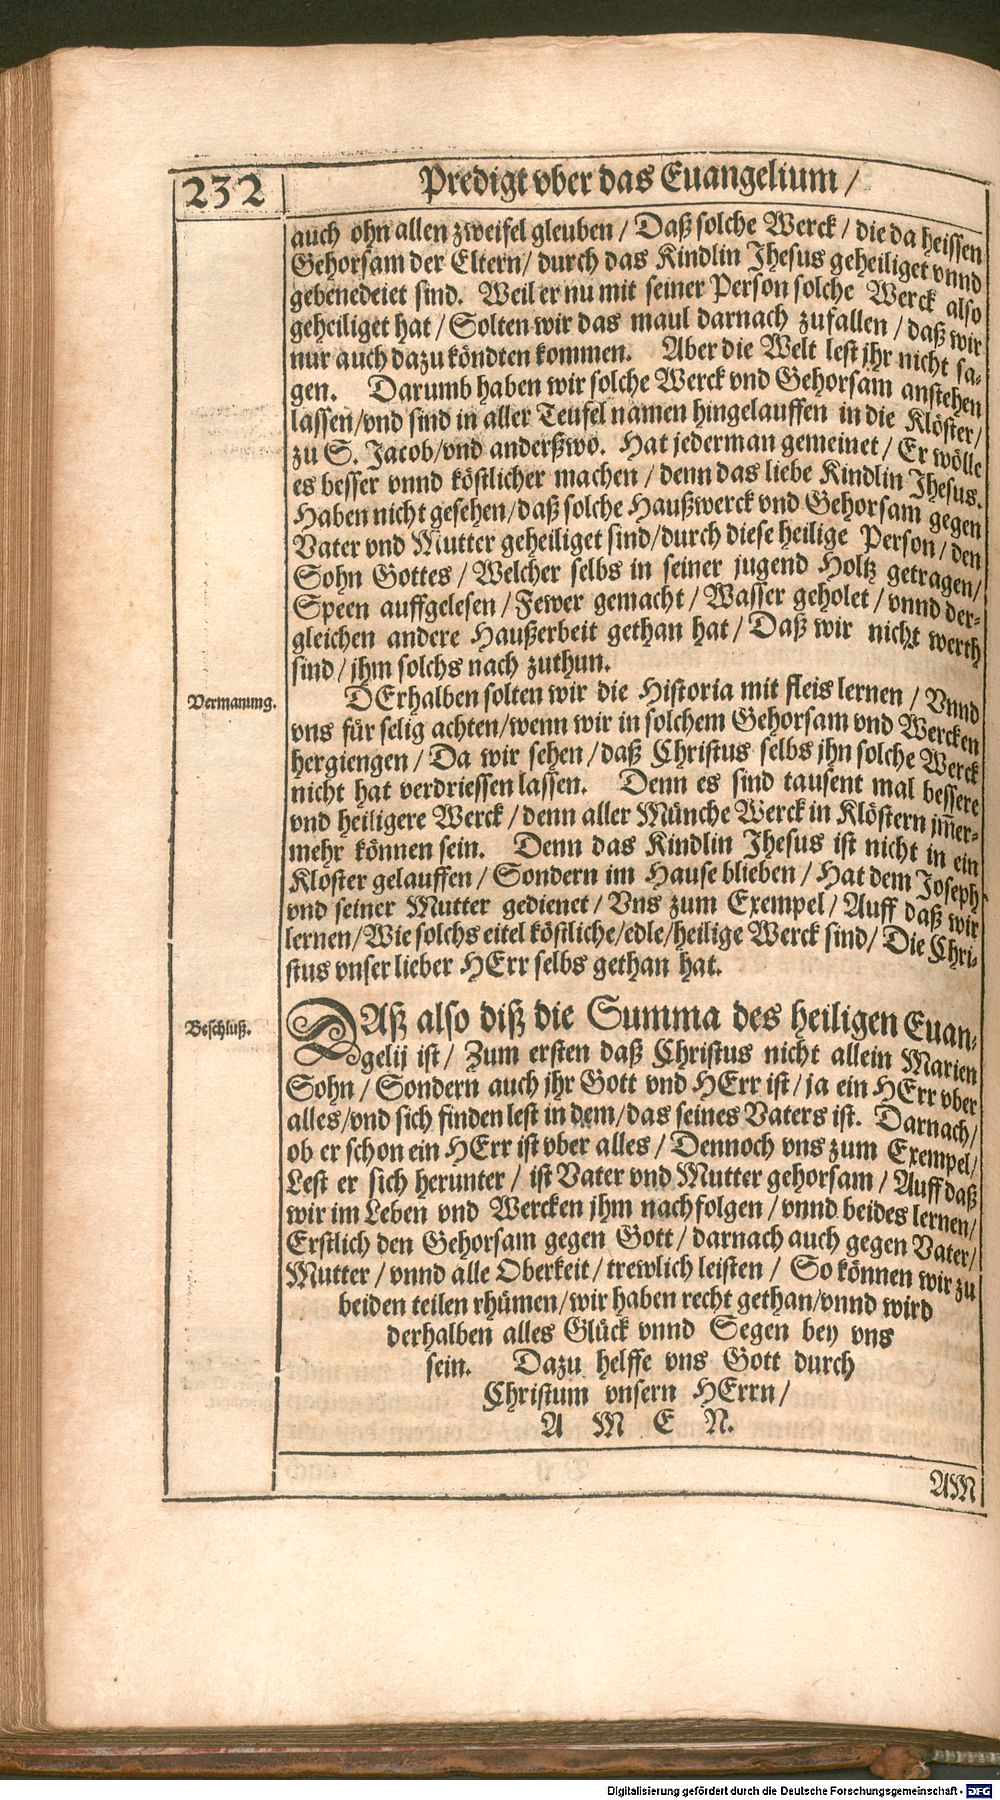 232
Predigt vber das Euangelium /
auch ohn allen zweifel gleuben / Daß solche Werck / die da heissen
Gehorsam der Eltern / durch das Kindlin Jhesus geheiliget vnnd
gebenedeiet sind. Weil er nu mit seiner Person solche Werck also
geheiliget hat / Solten wir das maul darnach zufallen / daß wir
nur auch dazu köndten kommen. Aber die Welt lest jhr nicht sa-
gen. Darumb haben wir solche Werck vnd Gehorsam anstehen
lassen / vnd sind in aller Teufel namen hingelauffen in die Klöster /
zu S. Jacob / vnd anderßwo. Hat jederman gemeinet / Er wölle
es besser vnnd köstlicher machen / denn das liebe Kindlin Jhesus.
Haben nicht gesehen / daß solche Haußwerck vnd Gehorsam gegen
Vater vnd Mutter geheiliget sind / durch diese heilige Person / den
Sohn Gottes / Welcher selbs in seiner jugend Holtz getragen /
Speen auffgelesen / Fewer gemacht / Wasser geholet / vnnd der-
gleichen andere Haußerbeit gethan hat / Daß wir nicht werth
sind / jhm solchs nach zuthun.
Vermanung.
DErhalben solten wir die Historia mit fleis lernen / Vnnd
vns für selig achten / wenn wir in solchem Gehorsam vnd Wercken
hergiengen / Da wir sehen / daß Christus selbs jhn solche Werck
nicht hat verdriessen lassen. Denn es sind tausent mal bessere
vnd heiligere Werck / denn aller Münche Werck in Klöstern jm̃er-
mehr können sein. Denn das Kindlin Jhesus ist nicht in ein
Kloster gelauffen / Sondern im Hause blieben / Hat dem Joseph
vnd seiner Mutter gedienet / Vns zum Exempel / Auff daß wir
lernen / Wie solchs eitel köstliche / edle / heilige Werck sind / Die Chri-
stus vnser lieber HErr selbs gethan hat.
Beschluß.
DAß also diß die Summa des heiligen Euan-
gelij ist / Zum ersten daß Christus nicht allein Marien
Sohn / Sondern auch jhr Gott vnd HErr ist / ja ein HErr vber
alles / vnd sich finden lest in dem / das seines Vaters ist. Darnach /
ob er schon ein HErr ist vber alles / Dennoch vns zum Exempel /
Lest er sich herunter / ist Vater vnd Mutter gehorsam / Auff daß
wir im Leben vnd Wercken jhm nachfolgen / vnnd beides lernen /
Erstlich den Gehorsam gegen Gott / darnach auch gegen Vater /
Mutter / vnnd alle Oberkeit / trewlich leisten / So können wir zu
beiden teilen rhümen / wir haben recht gethan / vnnd wird
derhalben alles Glück vnnd Segen bey vns
sein. Dazu helffe vns Gott durch
Christum vnsern HErrn /
A M E N.
AM
Digitalisierung gefördert durch die Deutsche Forschungsgemeinschaft - DFG